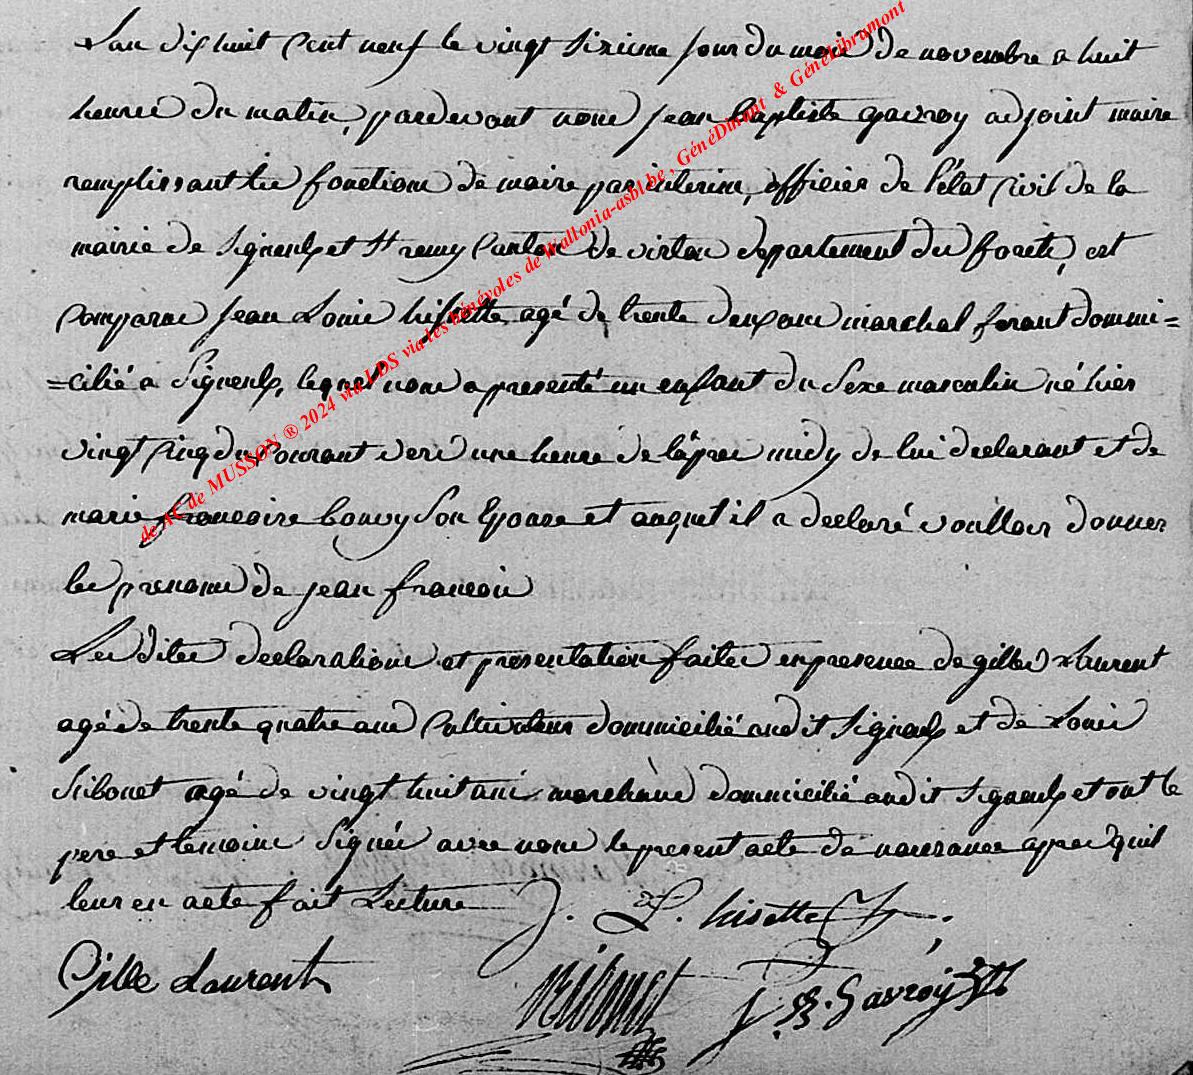 Lan dix huit Cent neuf le vingt sixieme jour du mois de novembre a huit
heures du matin, pardevant nous jean baptiste gavroy adjoint maire
remplissant les fonctions de maire par interim, officier de l'état Civil de la
mairie de Signeulx et St remy Canton de virton departement des forêts, est
Comparue jean Louis hisette agé de trente deux ans marchal ferant dommi=
=cilié a Signeulx, lequel nous a presenté un enfant du Sexe masculin né hier
vingt Cinq du Courant vers une heure de l'apres midy de lui declarant et de
marie francoise bouvy Son Epouse et auquel il a declaré voulloir donner
les prenoms de jean francois
Les dites declarations et presentation faites en presence de gilles Laurent
agé de trente quatre ans Cultivateur dommicilié audit Signeulx et de Louis
agé de vingt huit ans marchand dommicilié audit Signeulx et ont le
pere et temoins Signés avec nous le present acte de naissance apres quil
leur en acte fait Lecture J. L. hisette
Gille Laurent J. B. Gavroy
de AC de MUSSON ® 2024 via LDS via les bénévoles de wallonia-asbl.be , GénéDinant & GénéLibramont